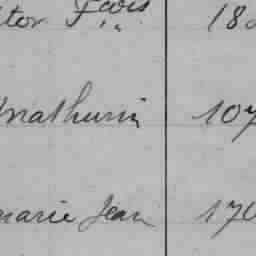 tor Fçois 18
Mathurin 107
marie Jean 170